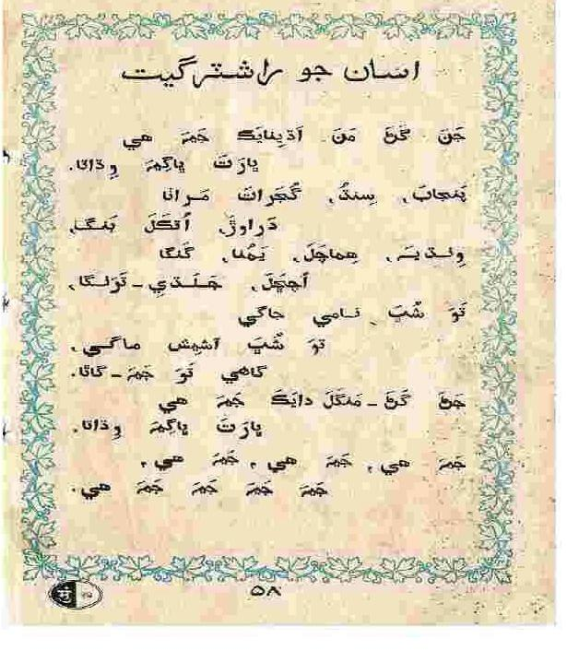 اسان جو راشٽرگيت
جَنَ گَڻَ مَنَ اَڌِينايَڪ جَيَہ هي
ڀارَتَ ڀاڳيَہ وِڌاتا.
پَنجابَ، سِنڌُ، گُجَراتَ مَراٺا
دَراوِڙَ، اُتڪَلَ بَنگَ،
وِنڌيہَ، هِماچَلَ، يَمُنا، گَنگا
اُڇَلَ، جَلَڌي - تَرَنگا،
تَوَ شُڀَ نامي جاڳي
تَوَ شُڀَ آشِيش ماڳي،
گاهي تَوَ جَيَہ - گاٿا.
جَنَ گَڻَ - مَنگَلَ دايَڪَ جَيَہ هي
ڀارَتَ ڀاڳيَہ وِڌاتا.
جَيَہ هي، جَيَہ هي، جَيَہ هي،
جَيَہ جَيَہ جَيَہ جَيَہ هي.
۵۸
मुं